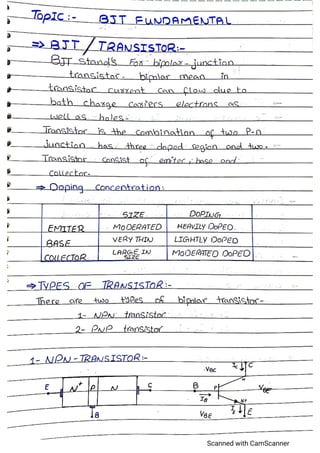 TOPIC :- BJT FUNDAMENTAL
⇒ BJT / TRANSISTOR:-
BJT stand's For bipolar-junction
transistor. bipolar mean in
transistor current can flow due to
both charge carriers electrons as
well as holes.
Transistor is the combination of two P-n
Junction has three doped region and two.
Transistor consist of emiter, base and
collector.
⇒ Doping concentration:
SIZE DOPING
EMITER MODERATED HEAVILY DOPED
BASE VERY THIN LIGHTLY DOPED
COLLECTOR LARGE IN SIZE MODERATED DOPED
⇒ TYPES OF TRANSISTOR:-
There are two types of bipolar transistor-
1- NPN transistor
2- PNP transistor
1- NPN-TRANSISTOR:-
E N+ P N C
B
VBC IC C
B P VCE
IB N+
VBE IE E
Scanned with CamScanner